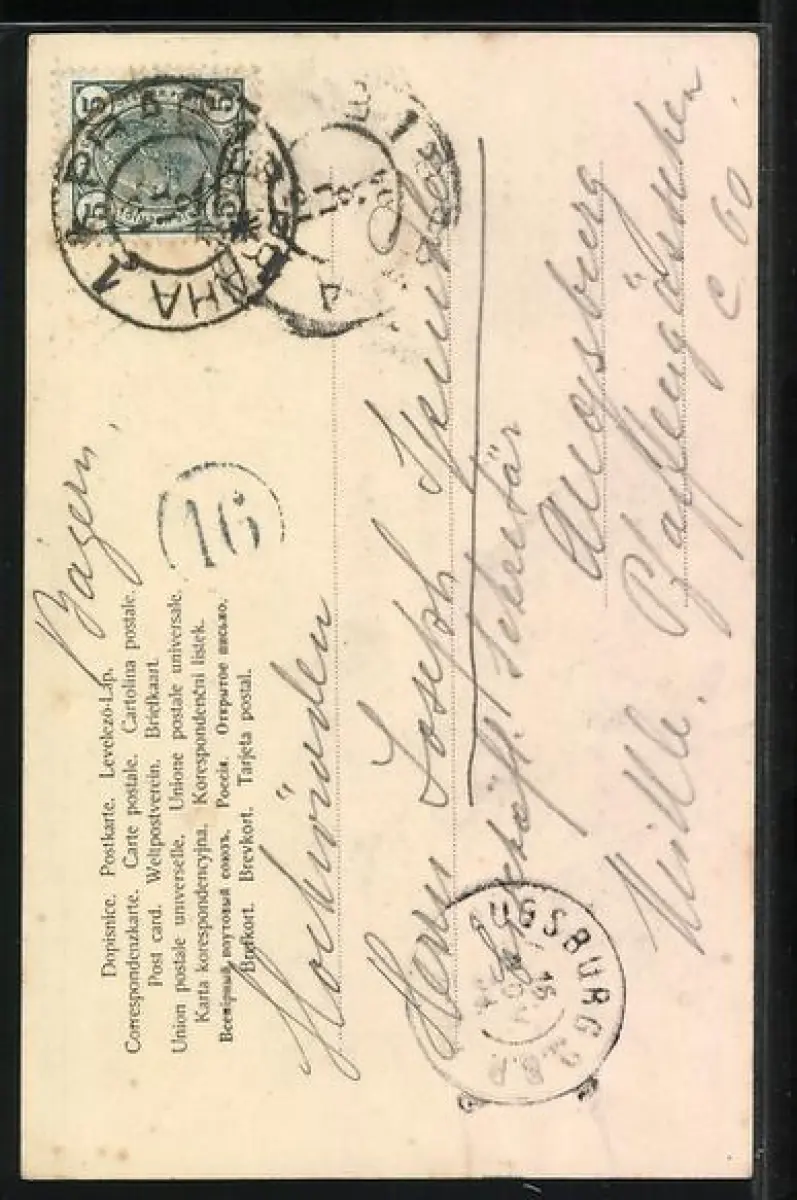 Dopisnice. Postkarte. Levelező-Lap.
Correspondenzkarte. Carte postale. Cartolina postale.
Post card. Weltpostverein. Briefkaart
Union postale universelle. Unione postale universale.
Karta korespondencyjna. Korespondenční listek.
Всемірный почтовый союзъ. Россія. Открытое письмо.
Brefkort. Brevkort. Tarjeta postal.
Bayern,
16
PRAHA 1
5 5
5 5
Hochwürden
Herrn Joseph
Sekretär
Augsburg
Mittl. Pfaffengäßchen
C 60.
AUGSBURG 2. B.P.